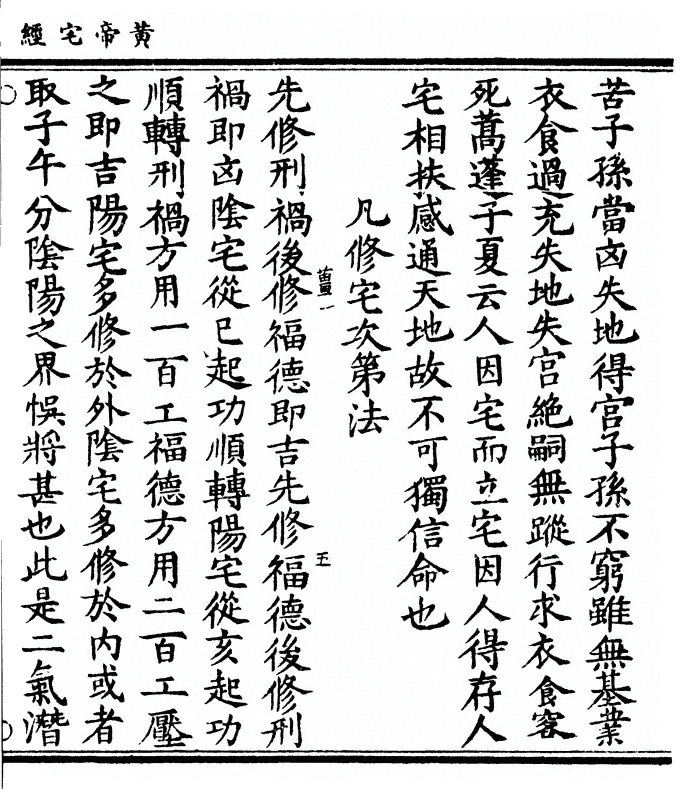 黃帝宅經
苦子孫當凶失地得宮子孫不窮雖無基業
衣食過充失地失宮絕嗣無蹤行求衣食客
死蒿蓬子夏云人因宅而立宅因人得存人
宅相扶感通天地故不可獨信命也
凡修宅次第法
先修刑禍後修福德即吉先修福德後修刑
薑一
五
禍即凶陰宅從巳起功順轉陽宅從亥起功
順轉刑禍方用一百工福德方用二百工壓
之即吉陽宅多修於外陰宅多修於內或者
取子午分陰陽之界悞將甚也此是二氣潛